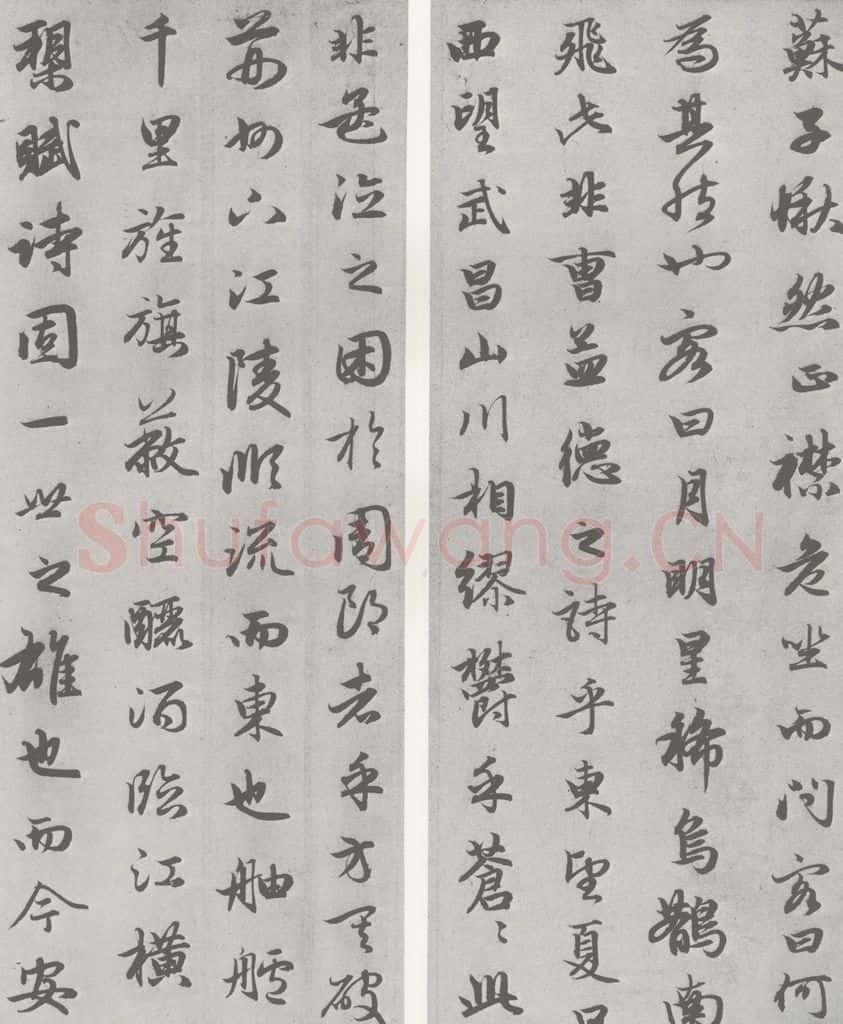 蘇子愀然正襟危坐而問客曰何
為其然也客曰月明星稀烏鵲南
飛此非曹孟德之詩乎東望夏口
西望武昌山川相繆鬱乎蒼〻此
非孟德之困於周郎者乎方其破
荊州下江陵順流而東也舳艫
千里旌旗蔽空釃酒臨江橫
槊賦詩固一世之雄也而今安
Shufawang.CN